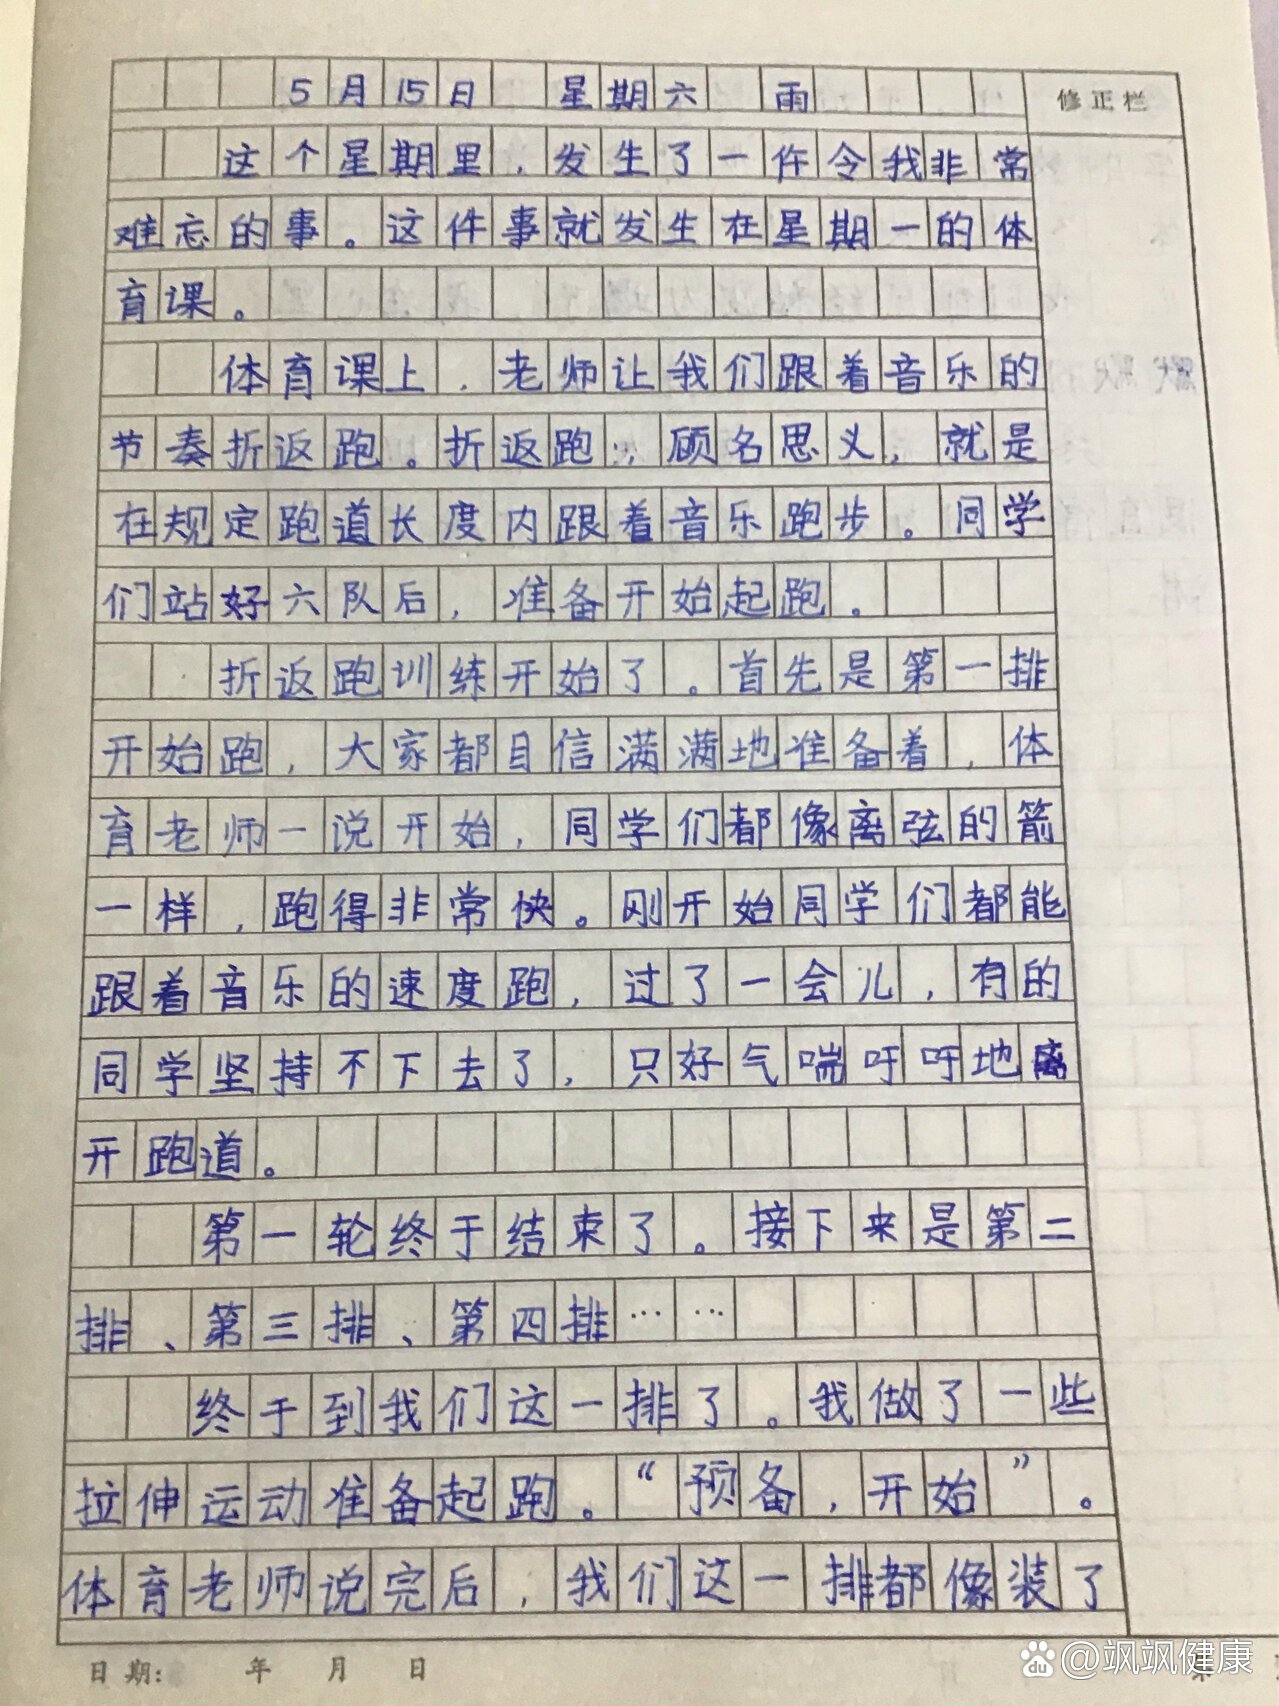 5月15日 星期六 雨
修正栏
这个星期里，发生了一件令我非常
难忘的事。这件事就发生在星期一的体
育课。
体育课上，老师让我们跟着音乐的
节奏折返跑。折返跑，顾名思义，就是
在规定跑道长度内跟着音乐跑步。同学
们站好六队后，准备开始起跑。
折返跑训练开始了。首先是第一排
开始跑，大家都自信满满地准备着，体
育老师一说开始，同学们都像离弦的箭
一样，跑得非常快。刚开始同学们都能
跟着音乐的速度跑，过了一会儿，有的
同学坚持不下去了，只好气喘吁吁地离
开跑道。
第一轮终于结束了。接下来是第二
排、第三排、第四排……
终于到我们这一排了。我做了一些
拉伸运动准备起跑。“预备，开始”。
体育老师说完后，我们这一排都像装了
日期: 年 月 日
Bai du @飒飒健康